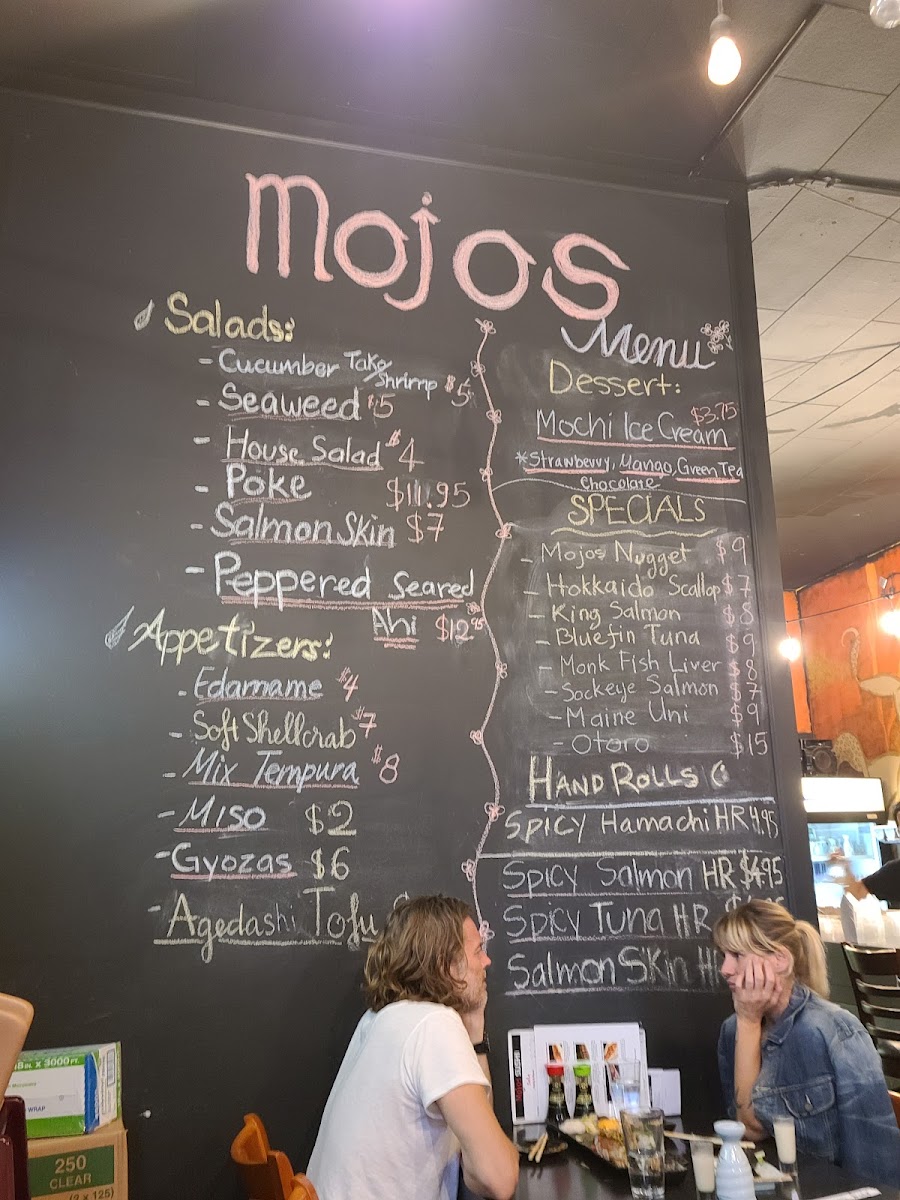 Mojos
Salads:
- Cucumber Tako/Shrimp $5
- Seaweed $5
- House Salad $4
- Poke $11.95
- Salmon Skin $7
- Peppered Seared
Ahi $12.95
Appetizers:
- Edamame $4
- Soft Shellcrab $7
- Mix Tempura $8
- Miso $2
- Gyozas $6
- Agedashi Tofu
Menu
Dessert:
$3.75
Mochi Ice Cream
*Strawberry, Mango, Green Tea
Chocolate
SPECIALS
- Mojos Nugget $9
- Hokkaido Scallop $7
- King Salmon $8
- Bluefin Tuna $9
- Monk Fish Liver $8
- Sockeye Salmon $7
- Maine Uni $9
- Otoro $15
HAND ROLLS
Spicy Hamachi HR 4.95
Spicy Salmon HR $4.95
Spicy Tuna HR
Salmon Skin
x 3000 FT.
WRAP
250
CLEAR
(2 x 125)